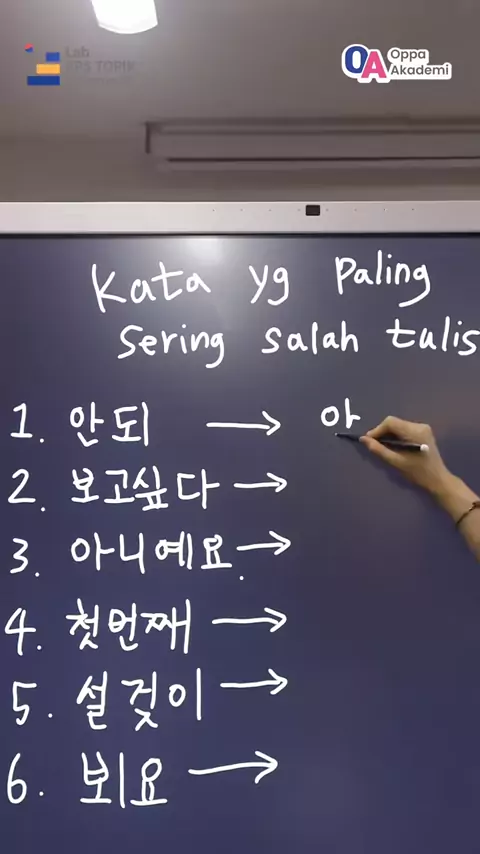 Lab
EPS TOPIK
OA Oppa
Akademi
Kata yg Paling
sering salah tulis
1. 안되 → 아
2. 보고싶다 →
3. 아니예요. →
4. 첫번째 →
5. 설겆이 →
6. 뵈요 →